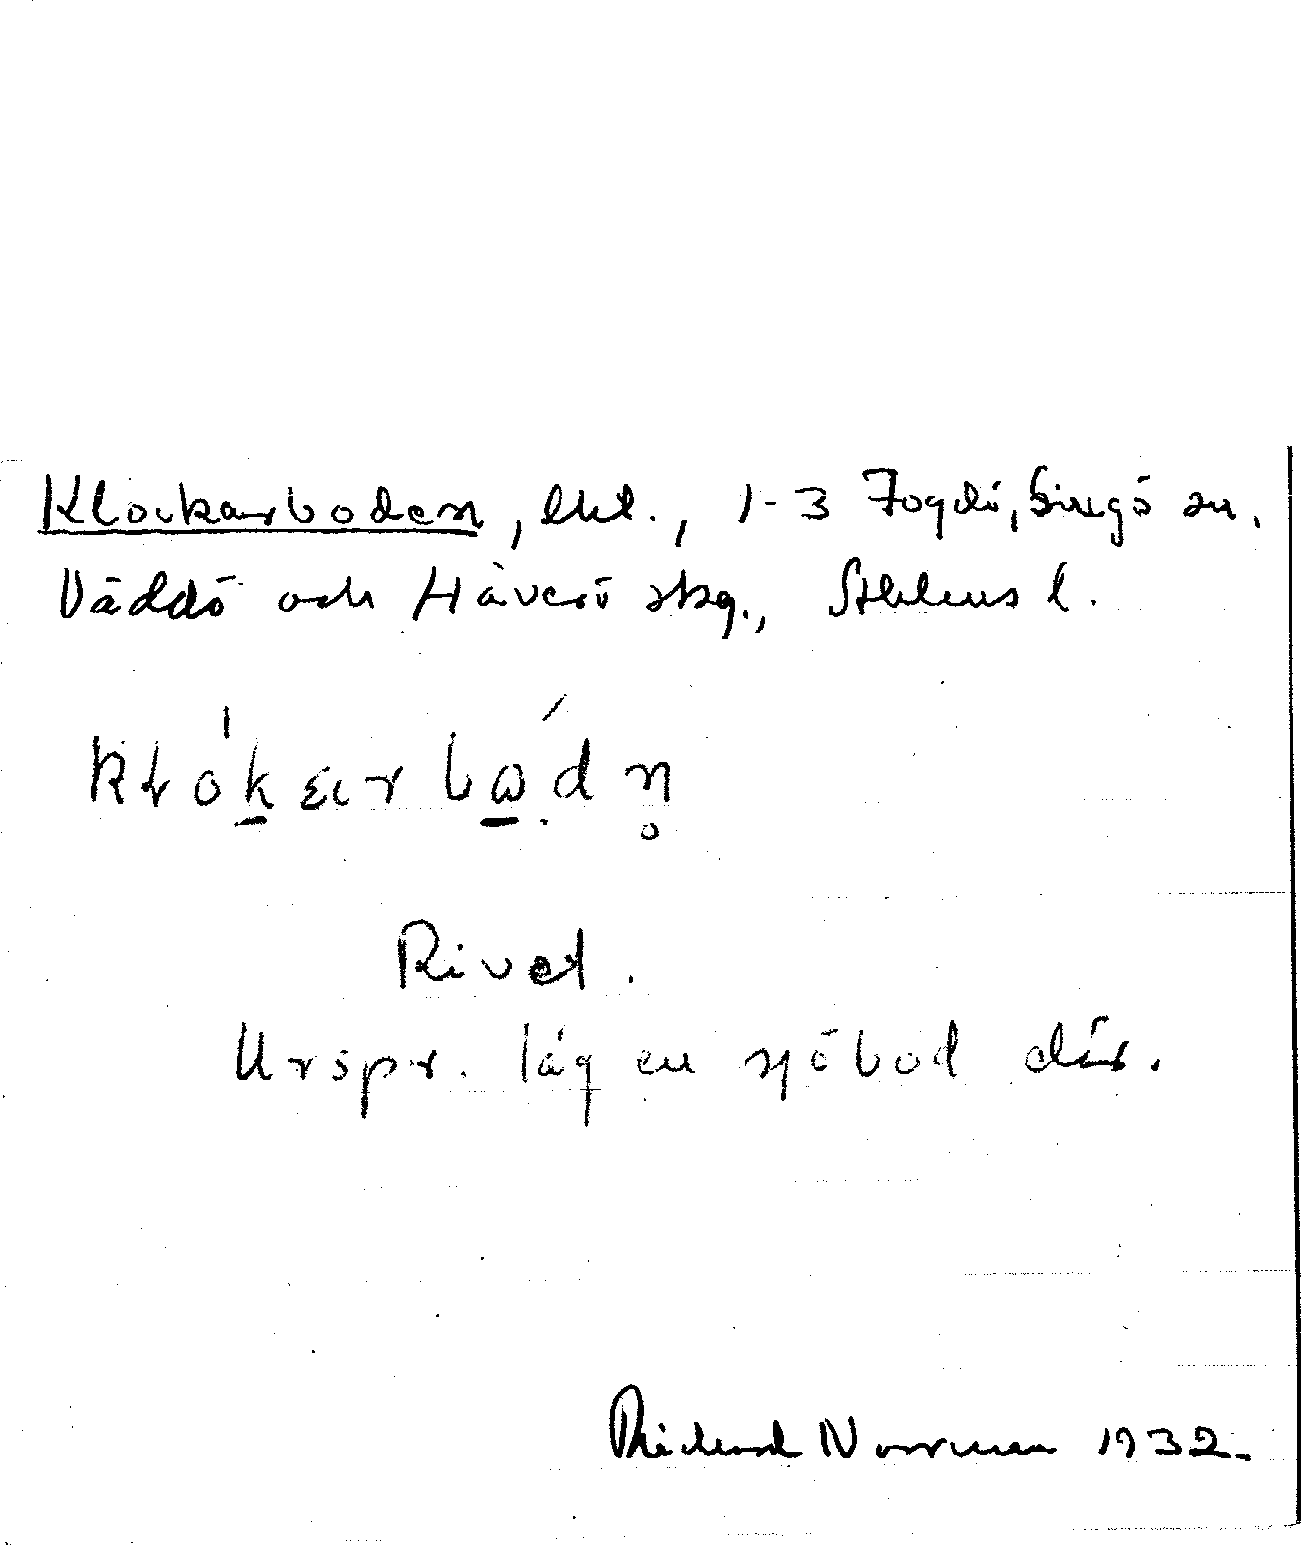 Klockarboden, lht., 1-3 Fogdö, Singö sn,
Väddö och Häverö skg., Sthlms l.
Rivet.
Urspr. låg en sjöbod där.
Rickard Norrman 1932.